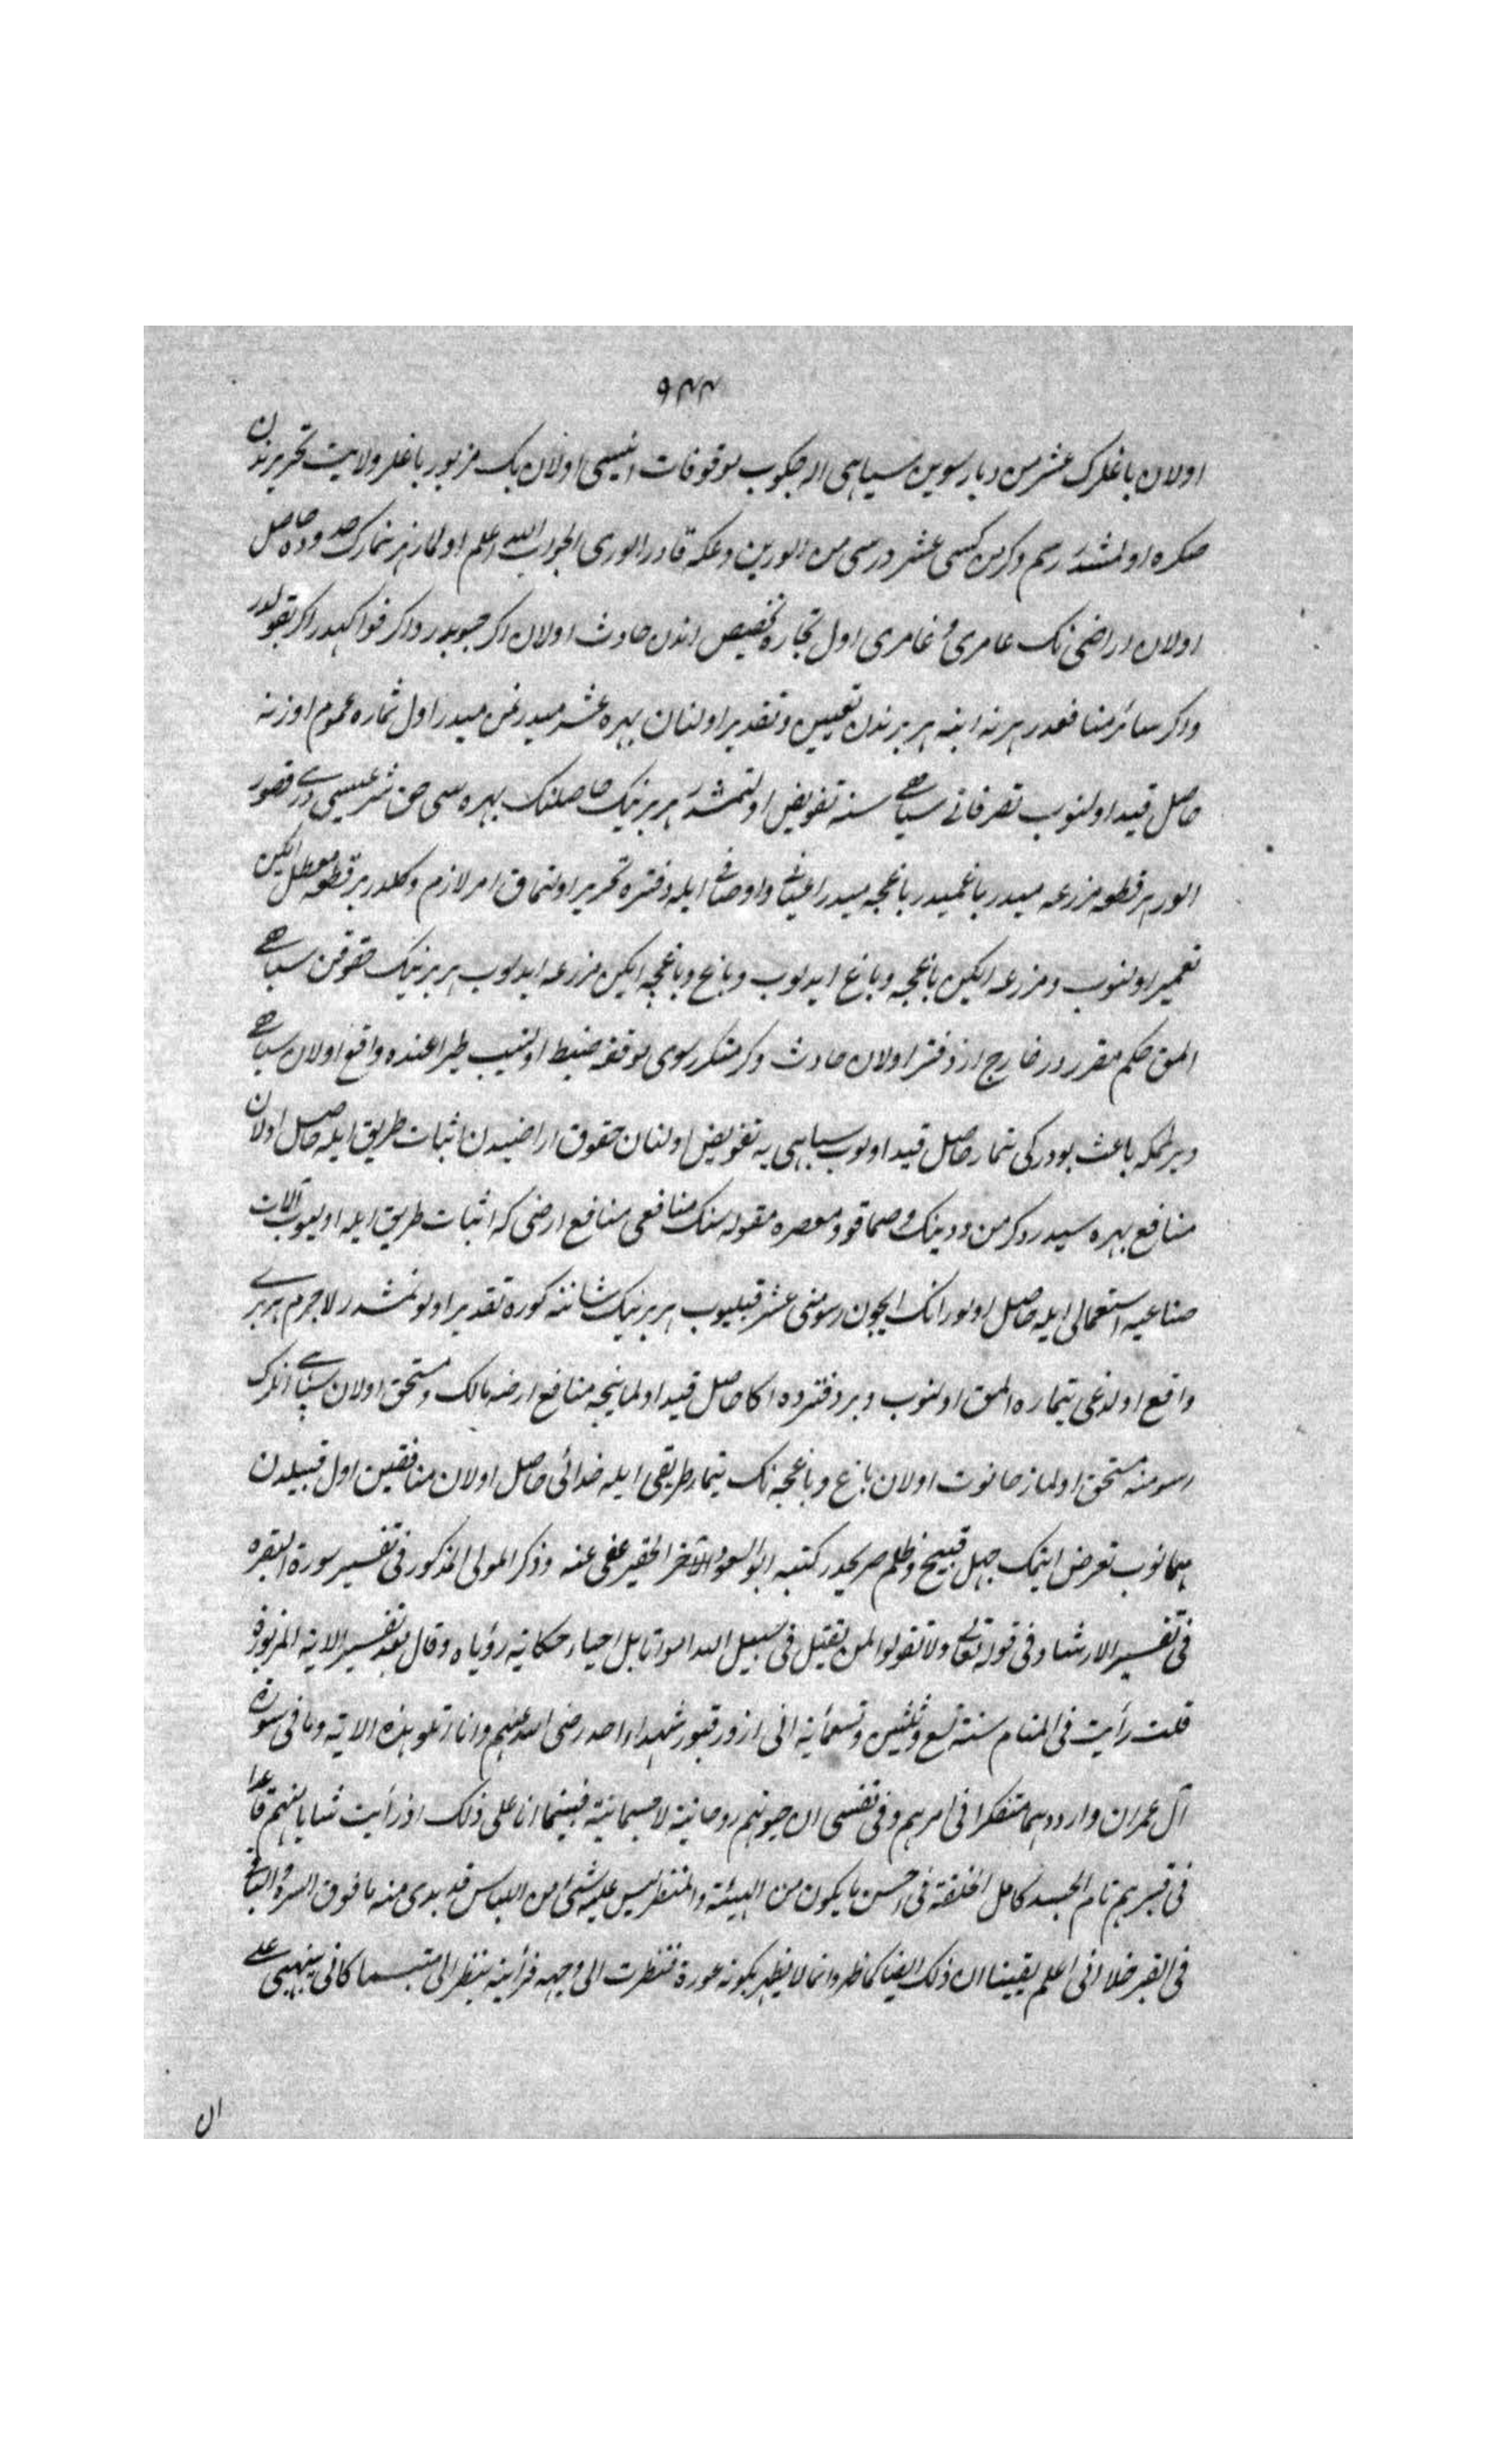 ٩٤٤
اولان باغلرك عشرمن ويا رسومن سپاهى الرجكوب موقوفات امينى اولان بك مزبور باغلر ولايت تحريرندن
صكره اولمشدر رسم وكرمن كسى عشر الورين ديمكه قادر اولورمى الجواب الله اعلم اولا هر تيمارك حدوده داخل
اولان اراضى نك عامرى و غامرى اول تيماره تخصيص اندن حادث اولان اكر حبوبدر واكر فواكهدر اكر بقولدر
واكر سائر منافعدر هر نه ايسه هر برندن تعيين وتقدير اولنان بهره عشرميدر ثمن ميدر اول تيماره عموم اوزرنه
حاصل قيد اولنوب تصرفاتى سپاهى سنه تفويض اولنمشدر هر برينك حاصلنك بهره سى حق شرعيسيدر بى قصور
الور هر قطعه مزرعه ميدر باغميدر باغچه ميدر اعيانى واوصافى ايله دفتره تحرير اولنماق امر لازم دكلدر بر قطعه معطل ايكن
تعمير اولنوب ومزرعه ايكن باغچه وباغ ايدلوب وباغ وباغچه ايكن مزرعه ايدلوب هر برينك حقوقن سپاهى
المق حكم مقرر در خارج از دفتر اولان حادث دكرمنلر رسومى موقوفه ضبط اولنيب طپراغنده واقع اولان سپاهى
ويرلمكه باعث بودركى تيمار حاصل قيد اولوب سپاهى يه تفويض اولنان حقوق اراضيدن اثبات طريق ايله حاصل اولان
منافع بهره سيدر دكرمن ودينك وصماقو ومعصره مقوله سنك منافعى منافع ارضى كه اثبات طريق ايله اوليوب آلات
صناعيه استعمالى ايله حاصل اولور انك ايچون رسومنى عشر قبليوب هر برينك شاننه كوره تقدير اولونمشدر لاجرم هر برى
واقع اولدغى تيماره الحق اولنوب وبر دفترده اكا حاصل قيد اولماينجه منافع ارضه مالك ومستحق اولان سپاهى انلرك
رسومنه مستحق اولماز حانوت اولان باغ وباغچه نك تيمار طريقى ايله خدائى حاصل اولان منافعين اول قبيلدن
صانوب تعرض ايتمك جهل قبيح وظلم صريحدر كتبه ابو السعود الآخر الحقير عفى عنه وذكر المولى المذكور فى تفسير سورة البقره
فى تفسير الارشاد فى قوله تعالى ولا تقولوا لمن يقتل فى سبيل الله اموات بل احياء حكاية رؤياه وقال بعد تفسير الاية المزبورة
قلت رأيت فى المنام سنة تسع وثلثين وتسعمائة انى ازور قبور شهداء احد رضى الله عنهم وانا اتلو هذه الاية وما فى سورة
آل عمران وارددهما متفكرا فى امرهم وفى نفسى ان حيوتهم روحانية لا جسمانية فبينما انا على ذلك اذ رأيت شابا منهم قاعدا
فى قبرهم تام الجسد كامل الخلقة فى احسن ما يكون من الهيئة والمنظر ليس عليه شئ من اللباس قد بدى منه ما فوق السرة والباقى
فى القبر خلا انى اعلم يقينا ان ذلك ايضا كما ظهر وانما لا يظهر لكونه عورة فنظرت الى وجهه فرأيته ينظر الى متبسما كانى ينبهنى على
ان